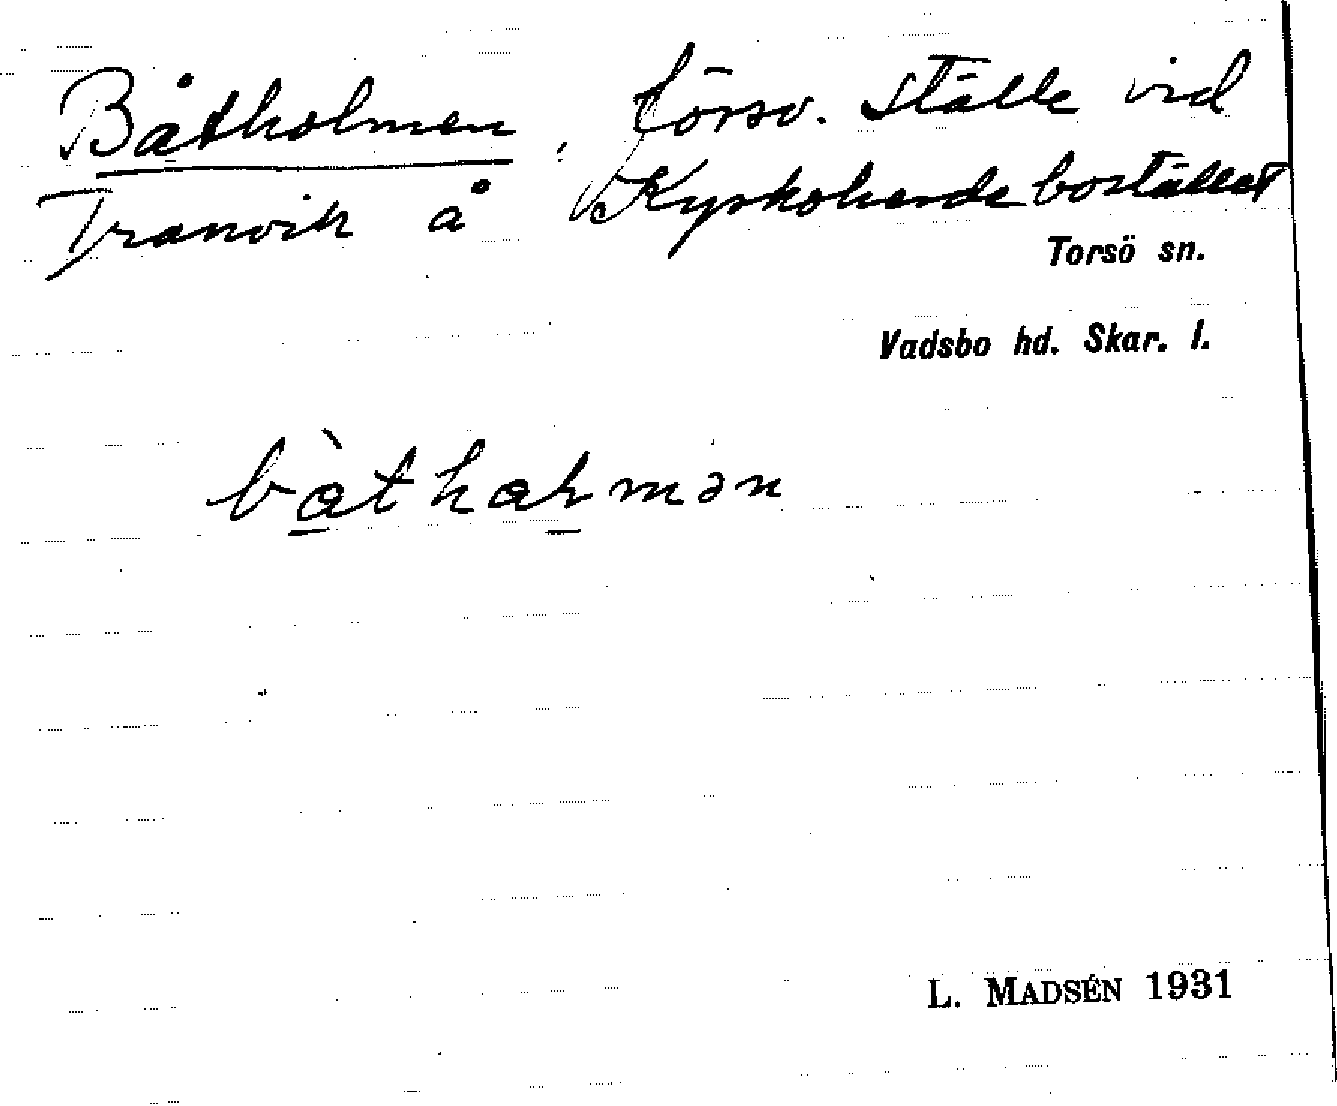 Båtholmen, försv. ställe vid
Tranvik å Kyrkoherdebostället
Torsö sn.
Vadsbo hd. Skar. l.
L. MADSÉN 1931